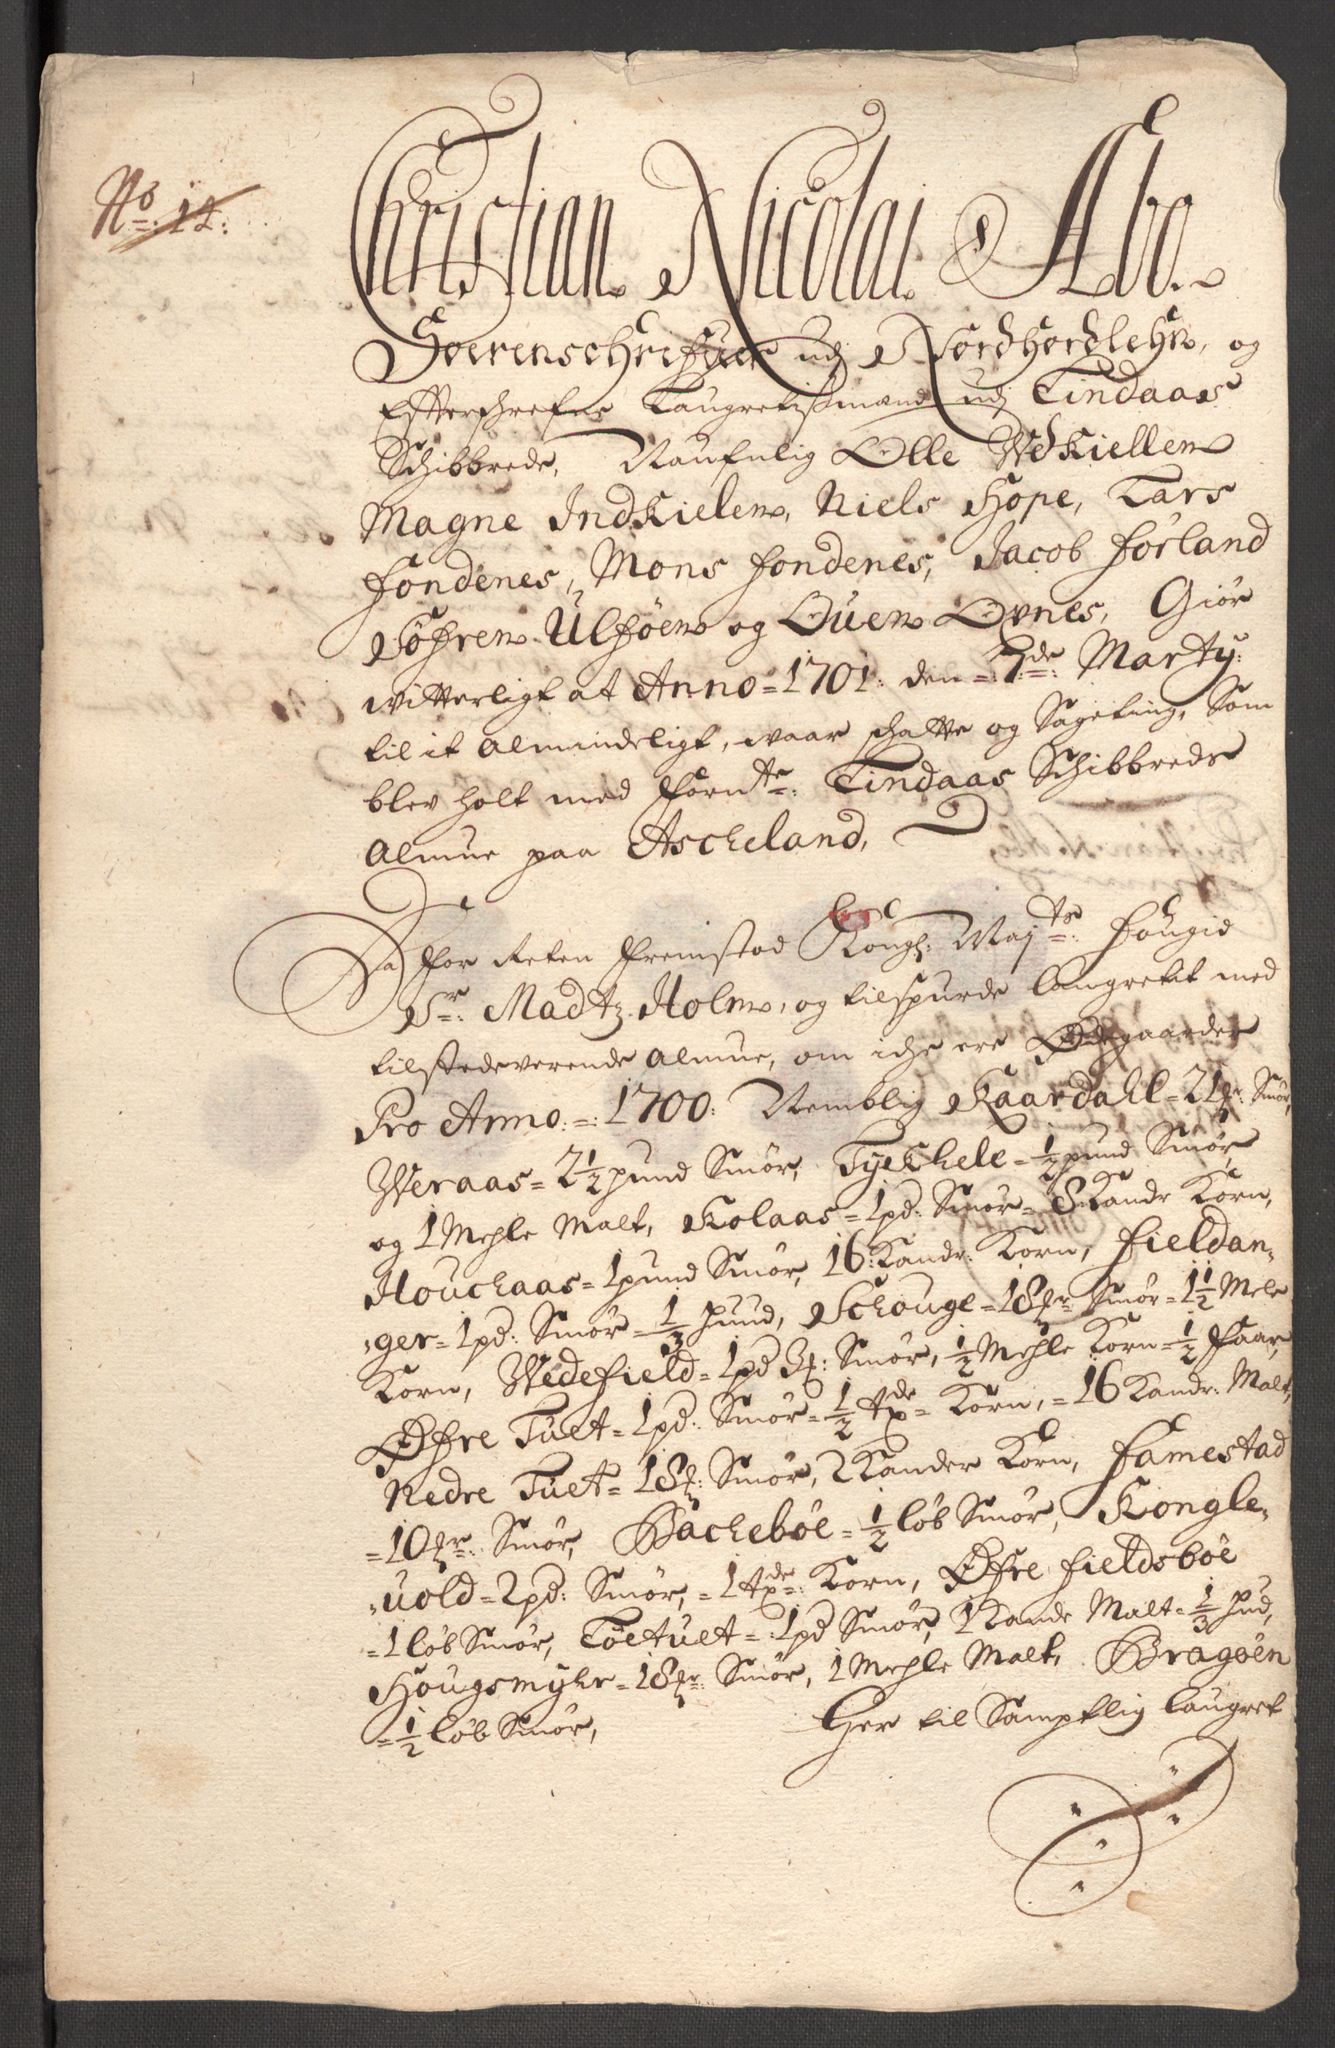 No: 14:
Christian Nicolai Abo.
Soerenschrifuer udj Nordhordlehn, og
Efterschrefne Laugretismænd udj Lindaas
Schibbrede, Naufnlig Olle Udkiellen
Magne Indkielen, Niels Hope, Lars
Fondenes, Mons Fondenes, Jacob Førland
Søfren Ulføen og Ouen Opnes, Giør
witterligt at Anno = 1701: den = 7de: Marty:
til it almindeligt, waar schatte og Sageting, Som
blev holt med forn.te: Lindaas Schibbreds
Almue paa Ascheland,
Da for Reten fremstod Kongl: Maj.ts: fougid
Sr: Madtz Holm, og tilspurde laugretit med
tilstedeverende almue, om iche ere Ødegaarder
Pro Anno =: 1700: Nemblig Kaardahl = 21 mr: Smør,
Weraas = 2½ pund Smør, Tyeckhele = ½ pund Smør
og 1 Mehle Malt, Kolaas = 1 pd: Smør = 8 Kandr Korn,
Houchaas = 1 pund Smør, 16: Kandr: Korn, Fieldan-
ger = 1 pd: Smør = 1/3 huud, Schouge = 18 mr Smør = 1½ Mele
Korn, Wedefield = 1 pd 3 mr: Smør, ½ Mehle Korn = ½ Faar,
Øfre Tuet = 1 pd: Smør = ½ tde = Korn, = 16 Kandr: Malt,
Nedre Tuet = 18 mr: Smør, 2 Kander Korn, Famestad
= 10 mr: Smør, Bachebøe = ½ løb Smør, Kongle-
uold = 2 pd: Smør, = 1 tde: Korn, Øfre Fieldsbøe
= 1 løb Smør, Toetuet =: 1 pd Smør, 1 Kande Malt = 1/3 hud,
Hougsmyhr = 18 mr: Smør, 1 Mehle Malt, Bragøen
= ½ løb Smør, Her til Samptlig laugret